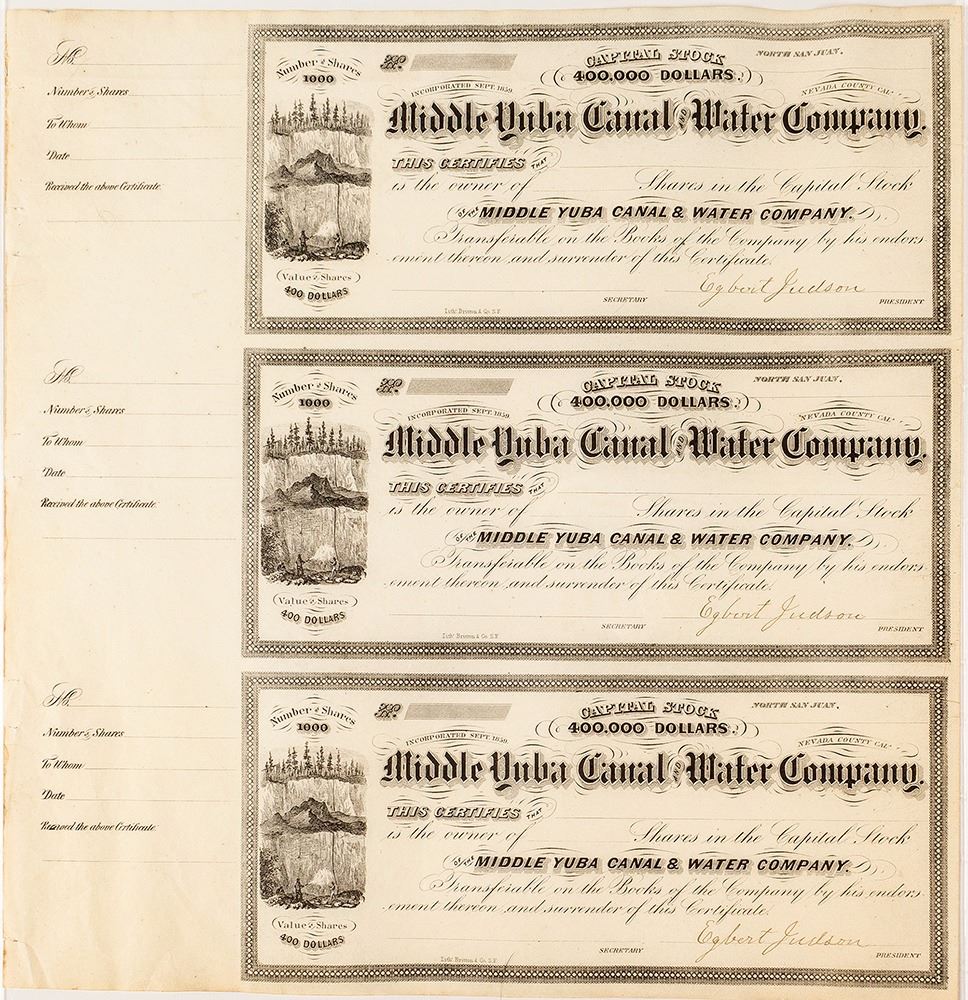 No.
Number of Shares
To Whom
Date
Received the above Certificate.
Number of Shares
1000
Value of Shares
400 DOLLARS
No.
CAPITAL STOCK
400,000 DOLLARS.
NORTH SAN JUAN,
NEVADA COUNTY CAL.
INCORPORATED SEPT. 1859.
Middle Yuba Canal AND Water Company.
THIS CERTIFIES THAT
is the owner of Shares in the Capital Stock
OF THE MIDDLE YUBA CANAL & WATER COMPANY.
Transferable on the Books of the Company by his endors
ement thereon and surrender of this Certificate.
Egbert Judson
SECRETARY PRESIDENT
Lith. Britton & Co. S.F.
No.
Number of Shares
To Whom
Date
Received the above Certificate.
Number of Shares
1000
Value of Shares
400 DOLLARS
No.
CAPITAL STOCK
400,000 DOLLARS.
NORTH SAN JUAN,
NEVADA COUNTY CAL.
INCORPORATED SEPT. 1859.
Middle Yuba Canal AND Water Company.
THIS CERTIFIES THAT
is the owner of Shares in the Capital Stock
OF THE MIDDLE YUBA CANAL & WATER COMPANY.
Transferable on the Books of the Company by his endors
ement thereon and surrender of this Certificate.
Egbert Judson
SECRETARY PRESIDENT
Lith. Britton & Co. S.F.
No.
Number of Shares
To Whom
Date
Received the above Certificate.
Number of Shares
1000
Value of Shares
400 DOLLARS
No.
CAPITAL STOCK
400,000 DOLLARS.
NORTH SAN JUAN,
NEVADA COUNTY CAL.
INCORPORATED SEPT. 1859.
Middle Yuba Canal AND Water Company.
THIS CERTIFIES THAT
is the owner of Shares in the Capital Stock
OF THE MIDDLE YUBA CANAL & WATER COMPANY.
Transferable on the Books of the Company by his endors
ement thereon and surrender of this Certificate.
Egbert Judson
SECRETARY PRESIDENT
Lith. Britton & Co. S.F.